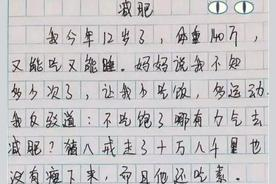 减肥
我今年12岁了，体重140斤，
又能吃又能睡。妈妈说我不知
多少次了，让我少吃饭，多运动。
我反驳道：不吃饱了哪有力气去
减肥？猪八戒走了十万八千里也
没有瘦下来，而且他还吃素。